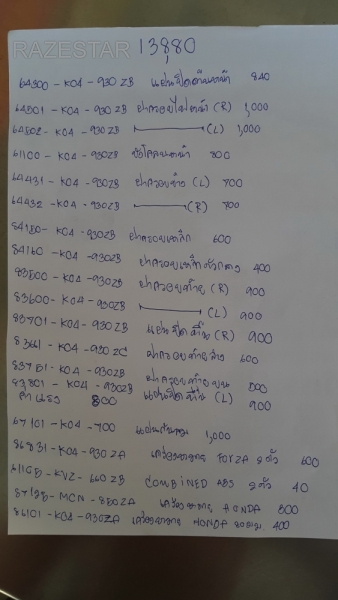 RAZESTAR
13,880
64300-K04-930ZB แผ่นปิดด้านหน้า 840
64501-K04-930ZB ฝาครอบไฟหน้า (R) 1,000
64502-K04-930ZB (L) 1,000
61100-K04-930ZB บังโคลนหน้า 800
64431-K04-930ZB ฝาครอบข้าง (L) 700
64432-K04-930ZB (R) 700
84150-K04-930ZB ฝาครอบเหล็ก 600
84160-K04-930ZB ฝาครอบเหล็กตัวกลาง 400
83500-K04-930ZB ฝาครอบท้าย (R) 900
83600-K04-930ZB (L) 900
83701-K04-930ZB แผ่นปิด (R) 900
83661-K04-930ZC ฝาครอบท้ายล่าง 600
83751-K04-930ZB ฝาครอบท้ายบน 500
83801-K04-930ZB แผ่นปิด (L) 900
800
67101-K04-700 1,000
86831-K04-930ZA เครื่องหมาย FORZA 2 ตัว 600
61105-KVZ-660ZB COMBINED ABS 2 ตัว 40
87125-MCN-850ZA เครื่องหมาย HONDA 800
86101-K04-930ZA เครื่องหมาย HONDA 400